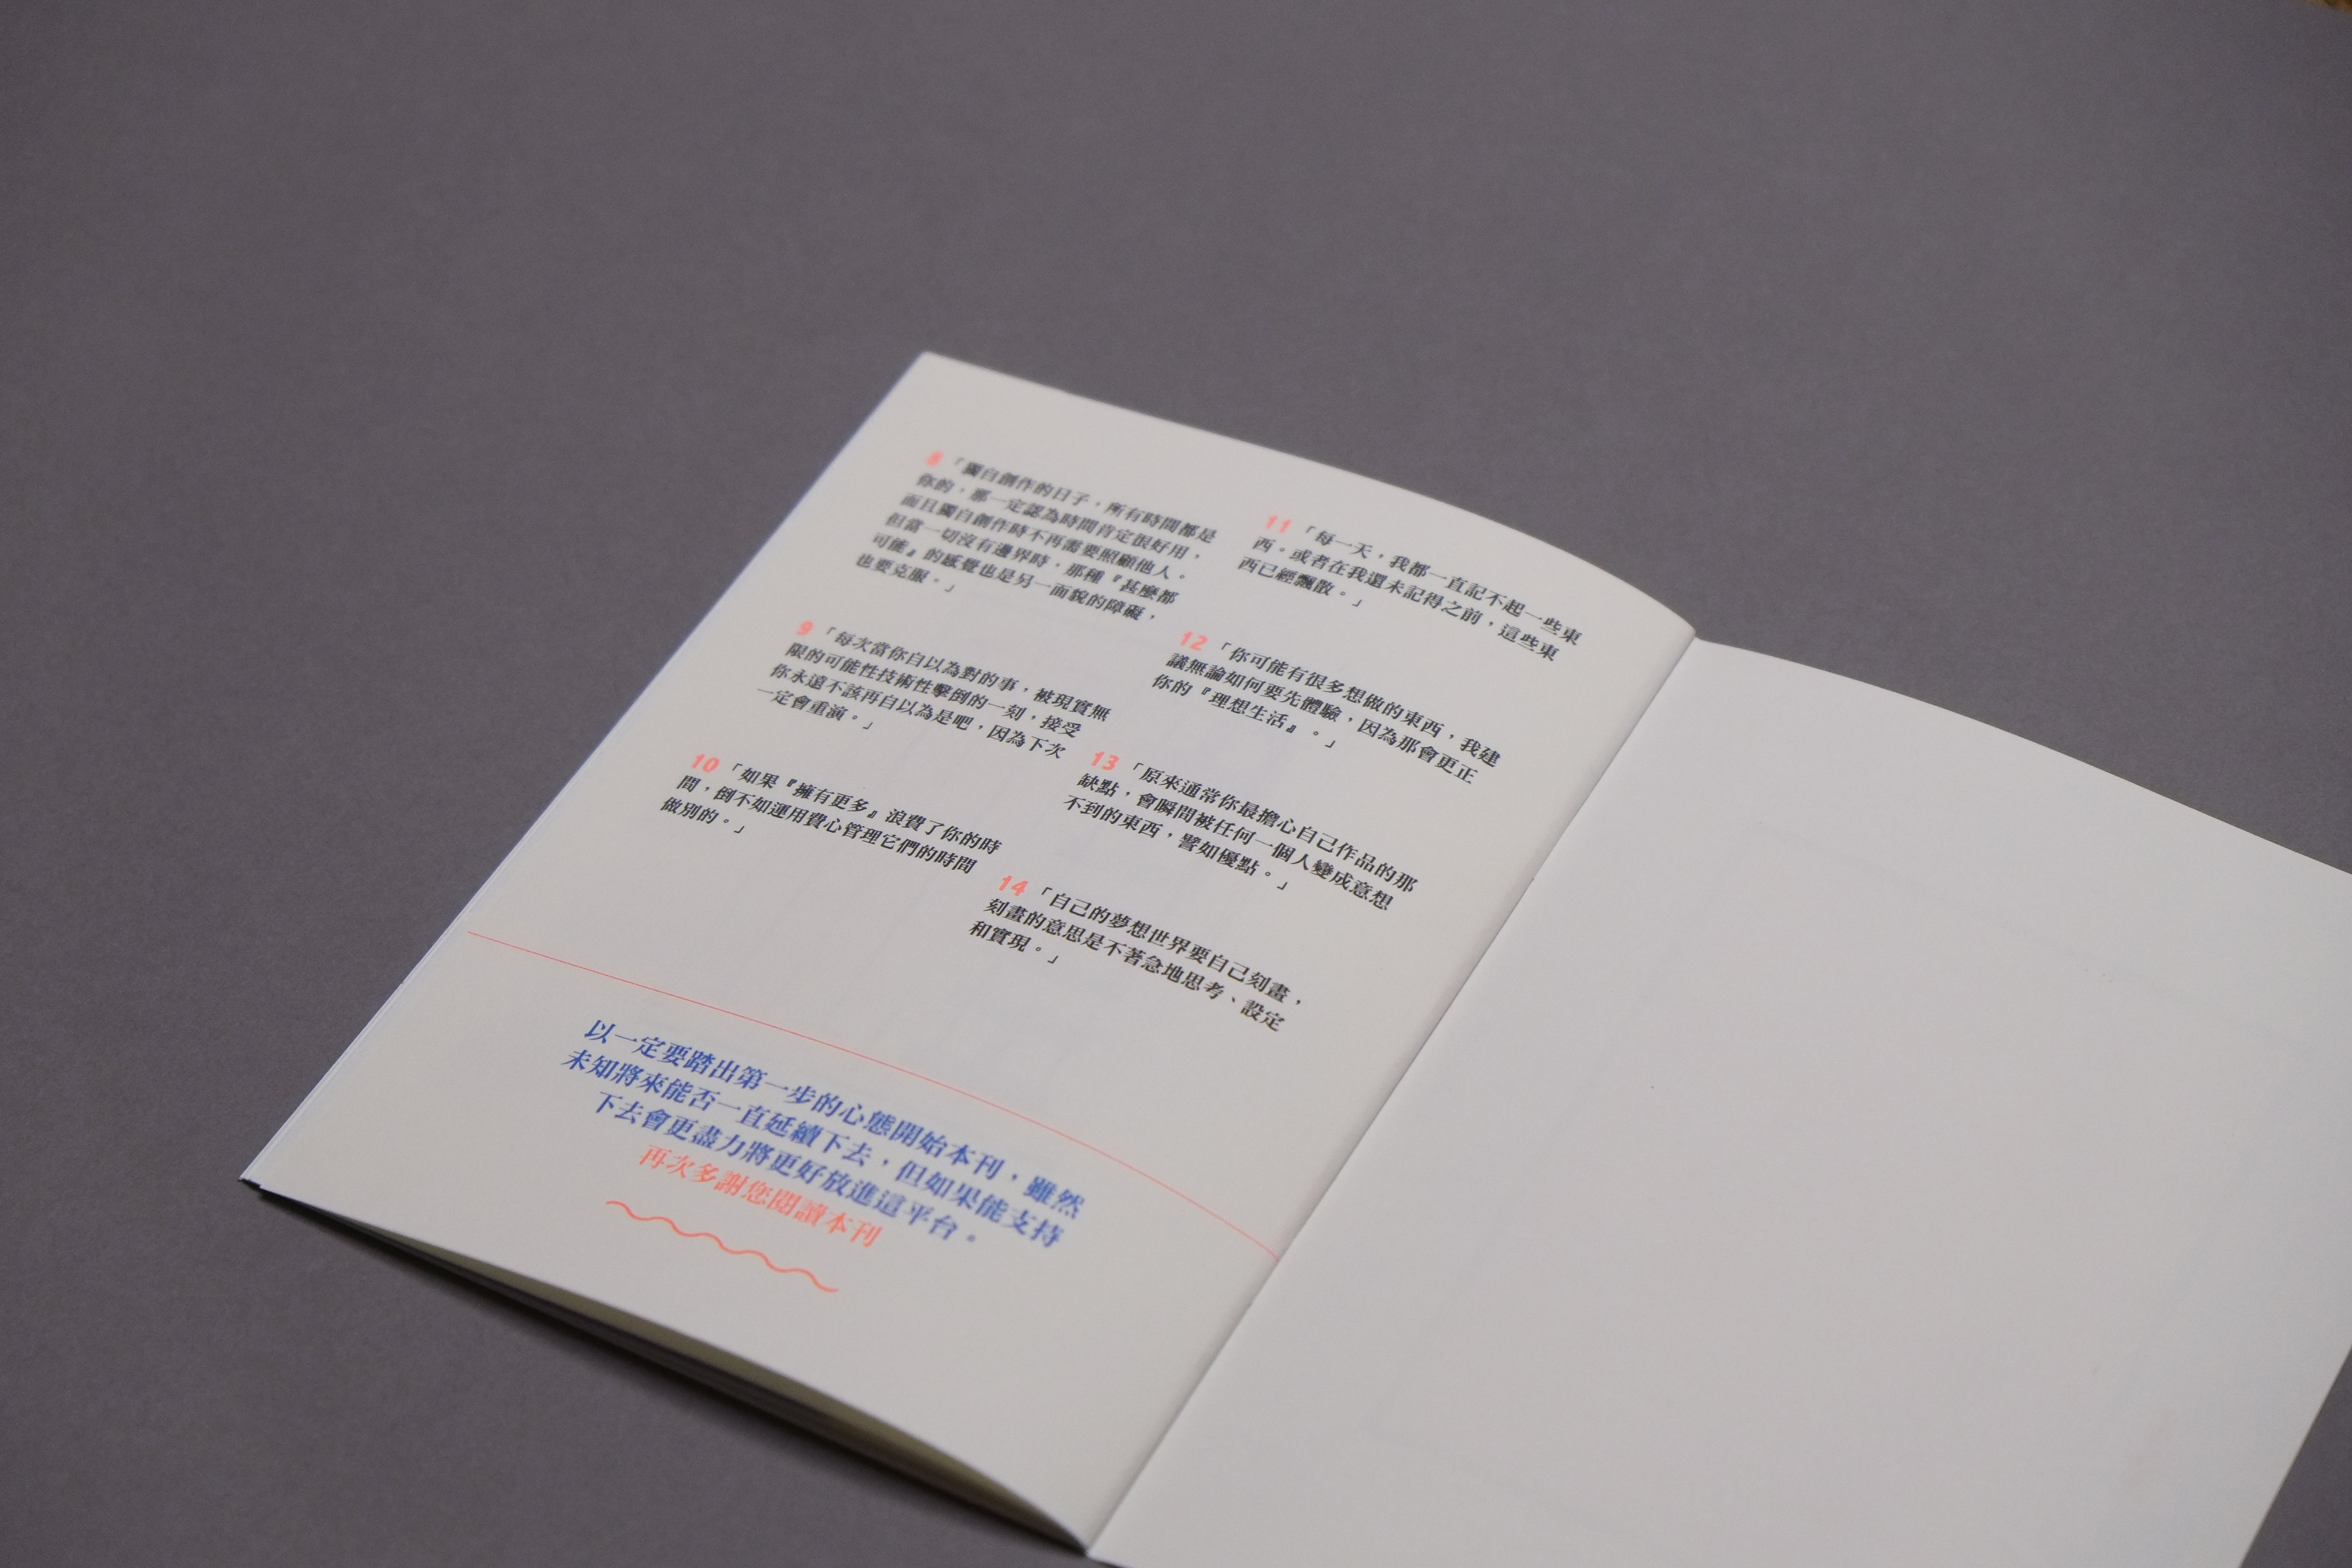 8 「獨自創作的日子，所有時間都是
你的，那一定認為時間肯定很好用，
而且獨自創作時不再需要照顧他人。
但當一切沒有邊界時，那種『甚麼都
可能』的感覺也是另一面貌的障礙，
也要克服。」
9 「每次當你自以為對的事，被現實無
限的可能性技術性擊倒的一刻，接受
你永遠不該再自以為是吧，因為下次
一定會重演。」
10 「如果『擁有更多』浪費了你的時
間，倒不如運用費心管理它們的時間
做別的。」
11 「每一天，我都一直記不起一些東
西。或者在我還未記得之前，這些東
西已經飄散。」
12 「你可能有很多想做的東西，我建
議無論如何要先體驗，因為那會更正
你的『理想生活』。」
13 「原來通常你最擔心自己作品的那
缺點，會瞬間被任何一個人變成意想
不到的東西，譬如優點。」
14 「自己的夢想世界要自己刻畫，
刻畫的意思是不著急地思考、設定
和實現。」
以一定要踏出第一步的心態開始本刊，雖然
未知將來能否一直延續下去，但如果能支持
下去會更盡力將更好放進這平台。
再次多謝您閱讀本刊